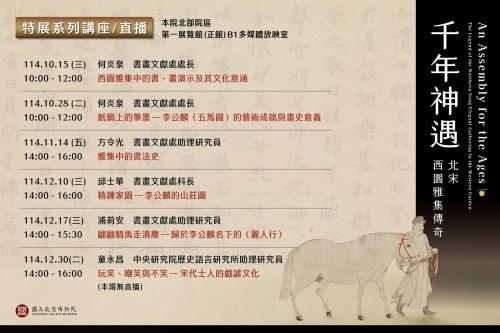 特展系列講座/直播
本院北部院區
第一展覽館(正館)B1多媒體放映室
114.10.15 (三) 何炎泉 書畫文獻處處長
10:00 - 12:00 西園雅集中的書、畫演示及其文化意涵
114.10.28 (二) 何炎泉 書畫文獻處處長
10:00 - 12:00 紙絹上的筆墨—李公麟〈五馬圖〉的藝術成就與畫史意義
114.11.14 (五) 方令光 書畫文獻處助理研究員
14:00 - 16:00 雅集中的書法史
114.12.10 (三) 邱士華 書畫文獻處科長
14:00 - 16:00 精鍊家園—李公麟的山莊圖
114.12.17(三) 浦莉安 書畫文獻處助理研究員
14:00 - 15:30 翩翩騎馬走清塵—歸於李公麟名下的〈麗人行〉
114.12.30(二) 童永昌 中央研究院歷史語言研究所助理研究員
14:00 - 16:00 玩笑、嘲笑與不笑—宋代士人的戲謔文化
(本場無直播)
國立故宮博物院
NATIONAL PALACE MUSEUM
千年神遇
北宋
西園雅集傳奇
An Assembly for the Ages
The Legend of the Northern Song Elegant Gathering in the Western Garden